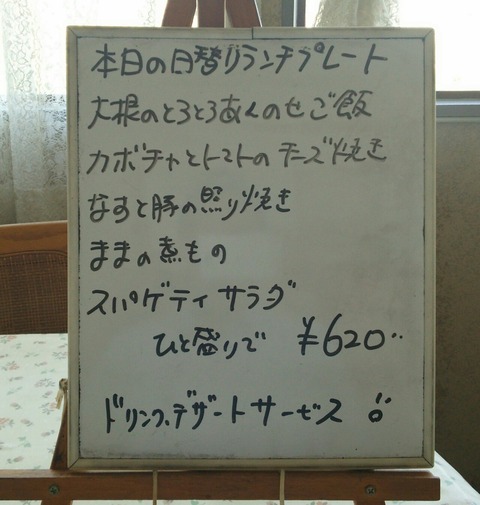 本日の日替りランチプレート
大根のとろとろあんのせご飯
カボチャとトマトのチーズ焼き
なすと豚の照り焼き
ままの煮もの
スパゲティサラダ
ひと盛りで ¥620..
ドリンク、デザートサービス